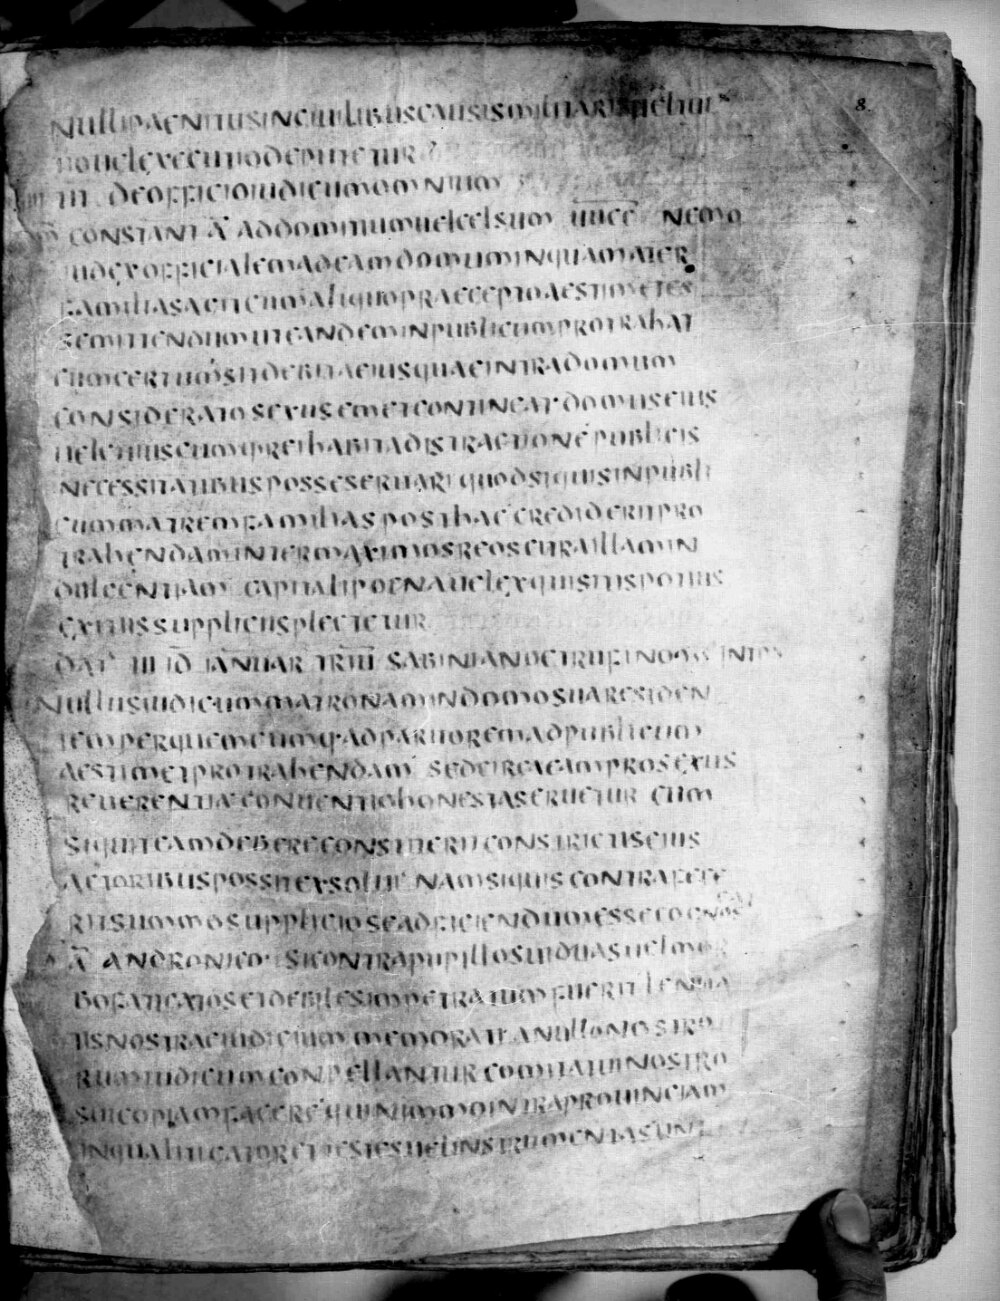 8.
NULLI PAENITUS IN CIUILIBUS CAUSIS MILITARIS
UO UEL EXECUTIO DEPUTETUR
III DE OFFICIO IUDICUM OMNIUM
CONSTANT A AD DOMITIUM CELSUM UICC NEMO
IUDEX OFFICIALEM AD EAM DOMUM IN QUA MATER
FAMILIAS AGIT CUM ALIQUO PRAECEPTO AESTIMET ES
SE MITTENDUM UT EANDEM IN PUBLICUM PROTRAHAT
CUM CERTUM SIT DEBITA EIUS QUAE INTRA DOMUM
CONSIDERATO SEXUS EM ET CONTINEAT DOMUS EIUS
UEL CUIUSCUMQ REI HABITA DISTRACTIONE PUBLICIS
NECESSITATIBUS POSSE SERUARI QUOD SI QUIS IN PUBLI
CUM MATREM FAMILIAS POSTHAC CREDIDERIT PRO
TRAHENDAM INTER MAXIMOS REOS CITRA ULLAM IN
DULGENTIAM CAPITALI POENA UEL EXQUISITIS POTIUS
EXITIIS SUPPLICIIS PLECTETUR
DAT III ID IANUAR TRIUI SABINIANO ET RUFINO
NULLUS IUDICUM MATRONAM IN DOMO SUA RESIDEN
TEM PER QUEMCUMQ APPARITOREM AD PUBLICUM
AESTIMET PROTRAHENDAM SED CIRCA EAM PRO SEXUS
REUERENTIA CONUENTIO HONESTAS ERUETUR CUM
SI QUIT EAM DEBERE CONSTITERIT CONSTRICTIS EIUS
ACTORIBUS POSSIT EXSOLUI NAM SI QUIS CONTRA FECE
RIT SUMMO SUPPLICIO SE ADFICIENDUM ESSE COGNOS
A ANDRONICO SI CONTRA PUPILLOS UIDUAS UEL MOR
BO FATIGATOS ET DEBILES IMPETRATUM FUERIT LENITA
TIS NOSTRAE IUDICIUM MEMORATI A NULLO NOSTRO
RUM IUDICUM CONPELLANTUR COMITATUI NOSTRO
SUI COPIAM FACERE QUINIMMO INTRA PROUINCIAM
IN QUA LITIGATOR ET TESTES UEL INSTRUMENTA SUNT